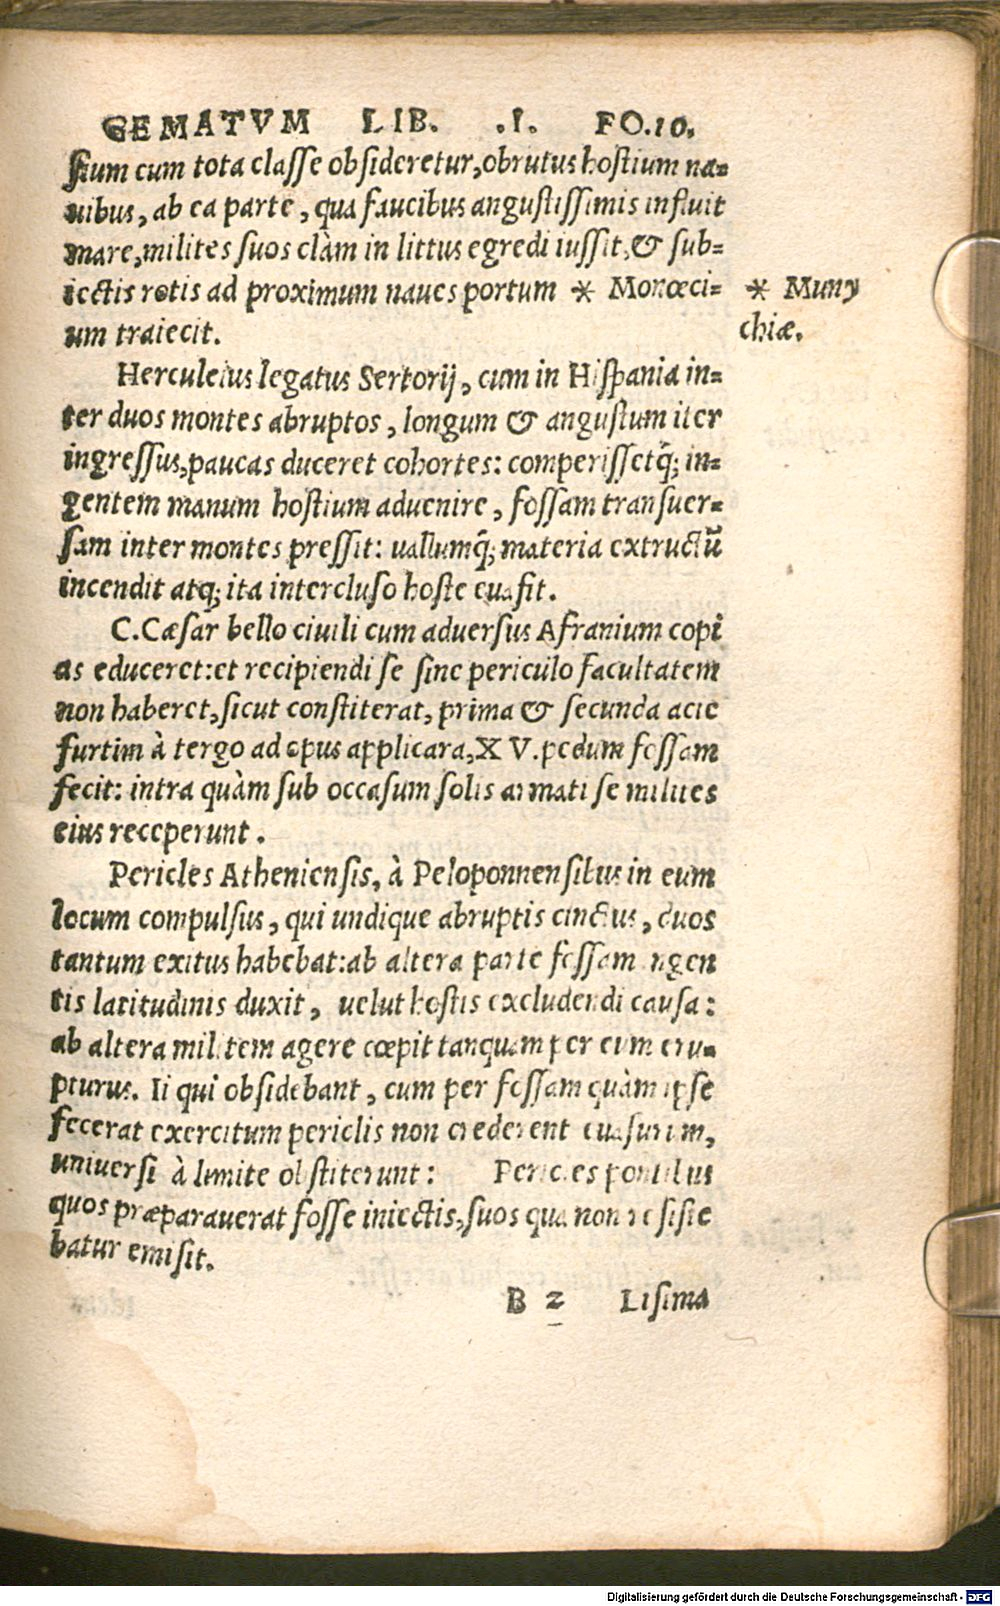 GEMATVM LIB. .I. FO.10.
sium cum tota classe obsideretur, obrutus hostium na=
uibus, ab ea parte, qua faucibus angustissimis influit
mare, milites suos clàm in littus egredi iussit, & sub=
iectis rotis ad proximum naues portum * Monœci=
um traiecit.
* Muny
chiæ.
Herculeius legatus Sertorij, cum in Hispania in=
ter duos montes abruptos, longum & angustum iter
ingressus, paucas duceret cohortes: comperissetq́; in=
gentem manum hostium aduenire, fossam transuer=
sam inter montes pressit: uallumq́; materia extructũ
incendit atq; ita intercluso hoste euasit.
C. Cæsar bello ciuili cum aduersus Afranium copi
as educeret: et recipiendi se sine periculo facultatem
non haberet, sicut constiterat, prima & secunda acie
furtim à tergo ad opus applicara, XV. pedum fossam
fecit: intra quàm sub occasum solis armati se milites
eius receperunt.
Pericles Atheniensis, à Peloponnensibus in eum
locum compulsus, qui undique abruptis cinctus, duos
tantum exitus habebat: ab altera parte fossam ingen
tis latitudinis duxit, uelut hostis excludendi causa:
ab altera militem agere cœpit tanquam per eum eru=
pturus. Ii qui obsidebant, cum per fossam quàm ipse
fecerat exercitum periclis non crederent euasurum,
uniuersi à limite obstiterunt: Pericles pontibus
quos præparauerat fosse iniectis, suos qua non resiste
batur emisit.
B 2 Lisima
Digitalisierung gefördert durch die Deutsche Forschungsgemeinschaft - DFG